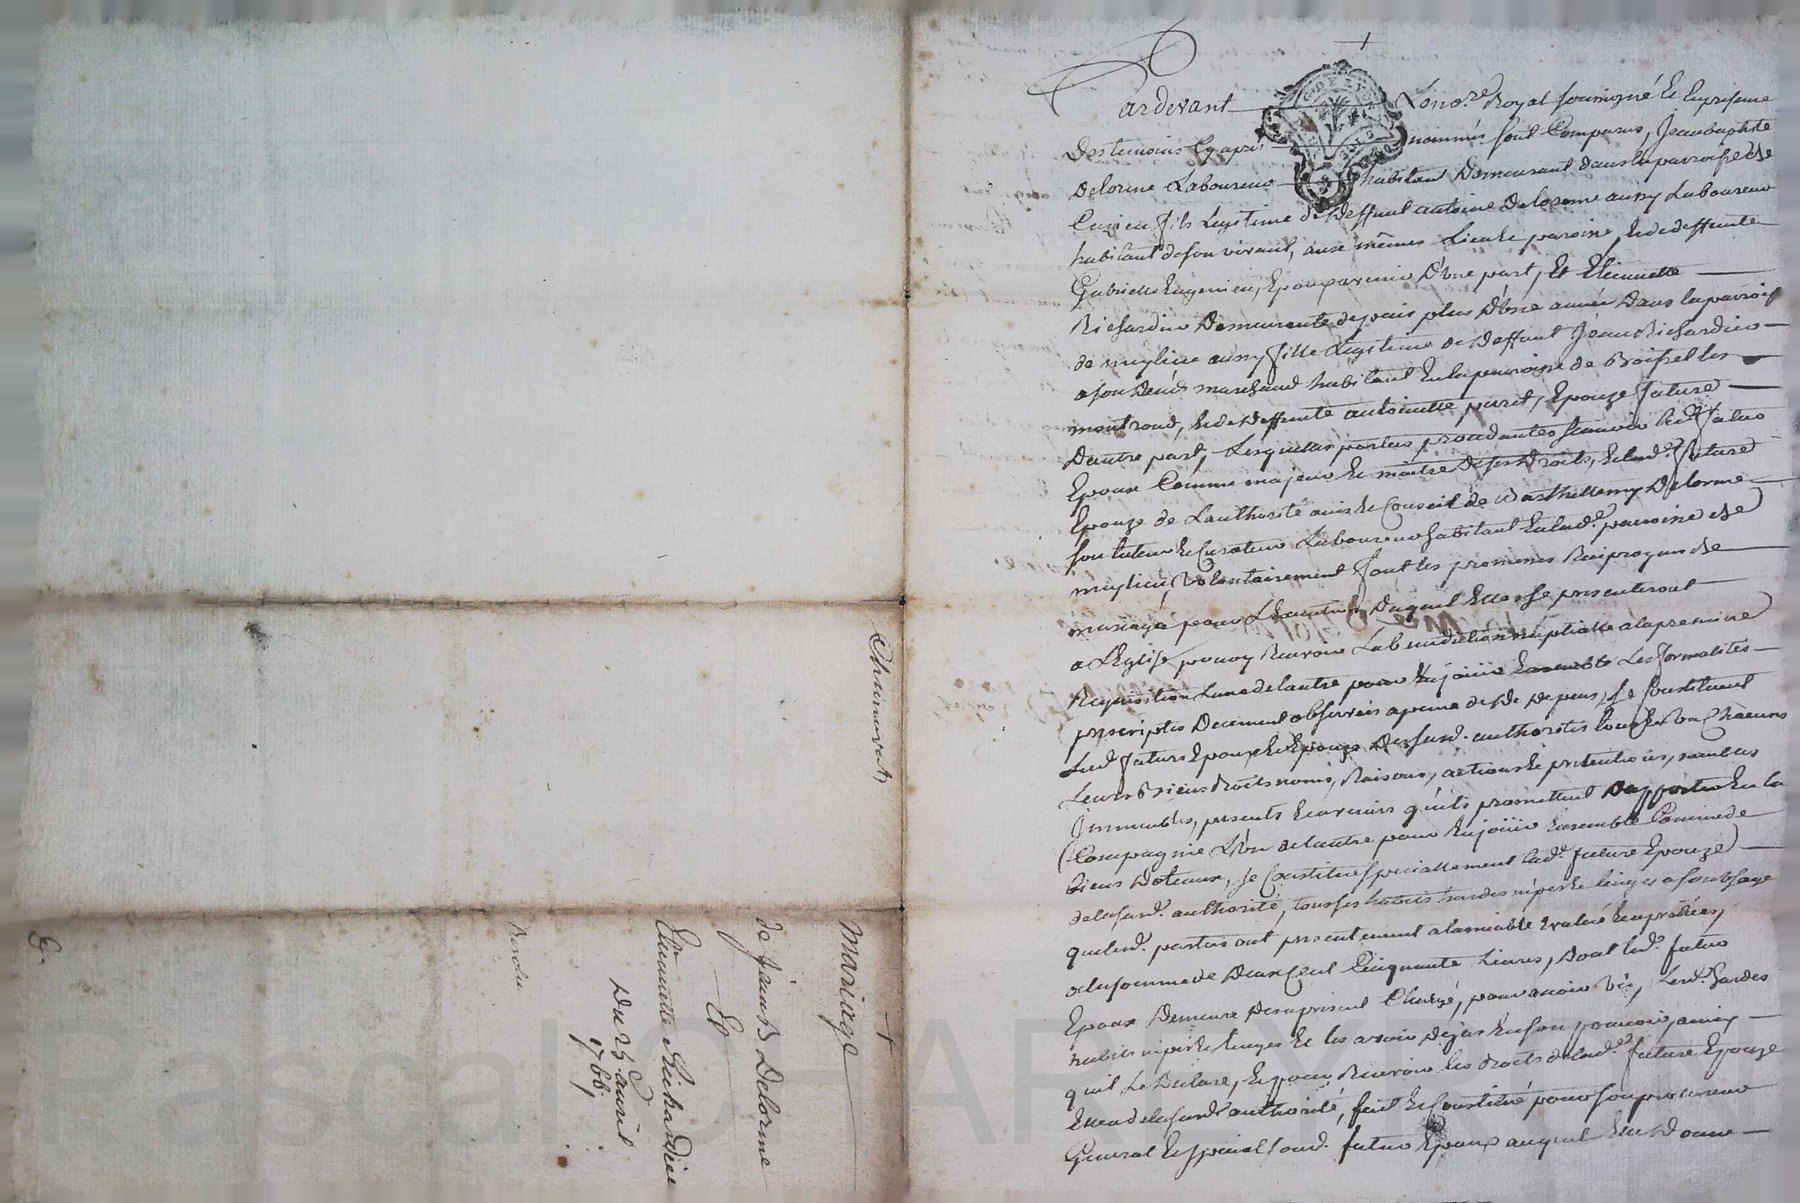 Mariage
de Jean B Delorme
Et
Etiennette Richardier
Du 25 avril
1766,
Rendu
G. DE LYON
Pardevant Le no.re Royal soussigné et en presence
Des temoins Cy apres nommés sont Comparus, Jean baptiste
Delorme Laboureur habitant Demeurant dans la parroisse de
Cuzieu fils Legitime de deffunt antoine Delorme aussy Laboureur
habitant de son vivant, aux mêmes Lieu et paroisse, et de deffunte
Gabrielle Epoux avenir D'une part, Et Etiennette
Richardier Demeurante depuis plus D'une année Dans la parroisse
de meylieu aussy fille Legitime de deffunt Jean Richardier
a son deceds marchand habitant en la parroisse de Boisset les
montrond, et de deffunte antoinette Epouze future
Dautre part, Lesquelles parties procedantes scavoir led. futur
Epoux Comme majeur et maitre de ses Droits, et lad. future
Epouze de Lauthorité avis et Conseil de Barthellemy Delorme
son tuteur et Curateur Laboureur habitant en lad. parroisse de
meylieu, volontairement font les promesses Reciproques de
mariage pour L'execution Duquel Elles se presenteront
a L'Eglise pour y Recevoir La benediction nuptialle a la premiere
Requisition Lune de lautre les formalites
prescriptes Decemment observées a peine de de depens, se Constituent
Led. futurs Epoux et Epouze De susd. authorités tous et un Chacuns
Leurs Biens droits noms, Raisons, actions et pretentions, meubles
Immeubles, presents et avenirs qu'ils promettent Dapporter en la
Compagnie L'un de lautre pour en joüir Ensemble Comme de
biens Dotaux, se Constitue specialement lad. future Epouze
de la susd. authorité, tous ses habits hardes nipes et linges a son usage
que lesd. parties ont presentement a lamiable evalué
a la somme de Deux Cent Cinquante Livres, Dont led. futur
Epoux Demeure Des a present Chargé, pour avoir vû, lesd. hardes
habits nipes et linges Et les avoir dejas en son pouvoir, ainsy
quil Le Declare, et pour Recevoir les droits de lad. future Epouze
Elle de la susd. authorité, fait et Constitue pour son procureur
General et special led. futur Epoux auquel Elle donne